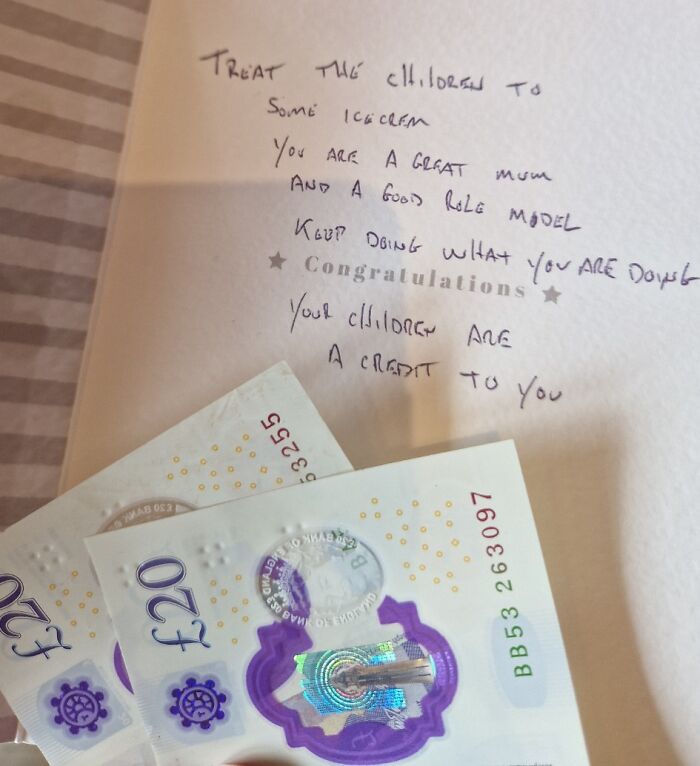 TREAT THE CHILDREN TO
SOME ICECREM
YOU ARE A GREAT MUM
AND A GOOD ROLE MODEL
KEEP DOING WHAT YOU ARE DOING
★ Congratulations ★
YOUR CHILDREN ARE
A CREDIT TO YOU
53255
£20 BANK
£20
BB53 263097
£20 BANK OF ENGLAND
£20